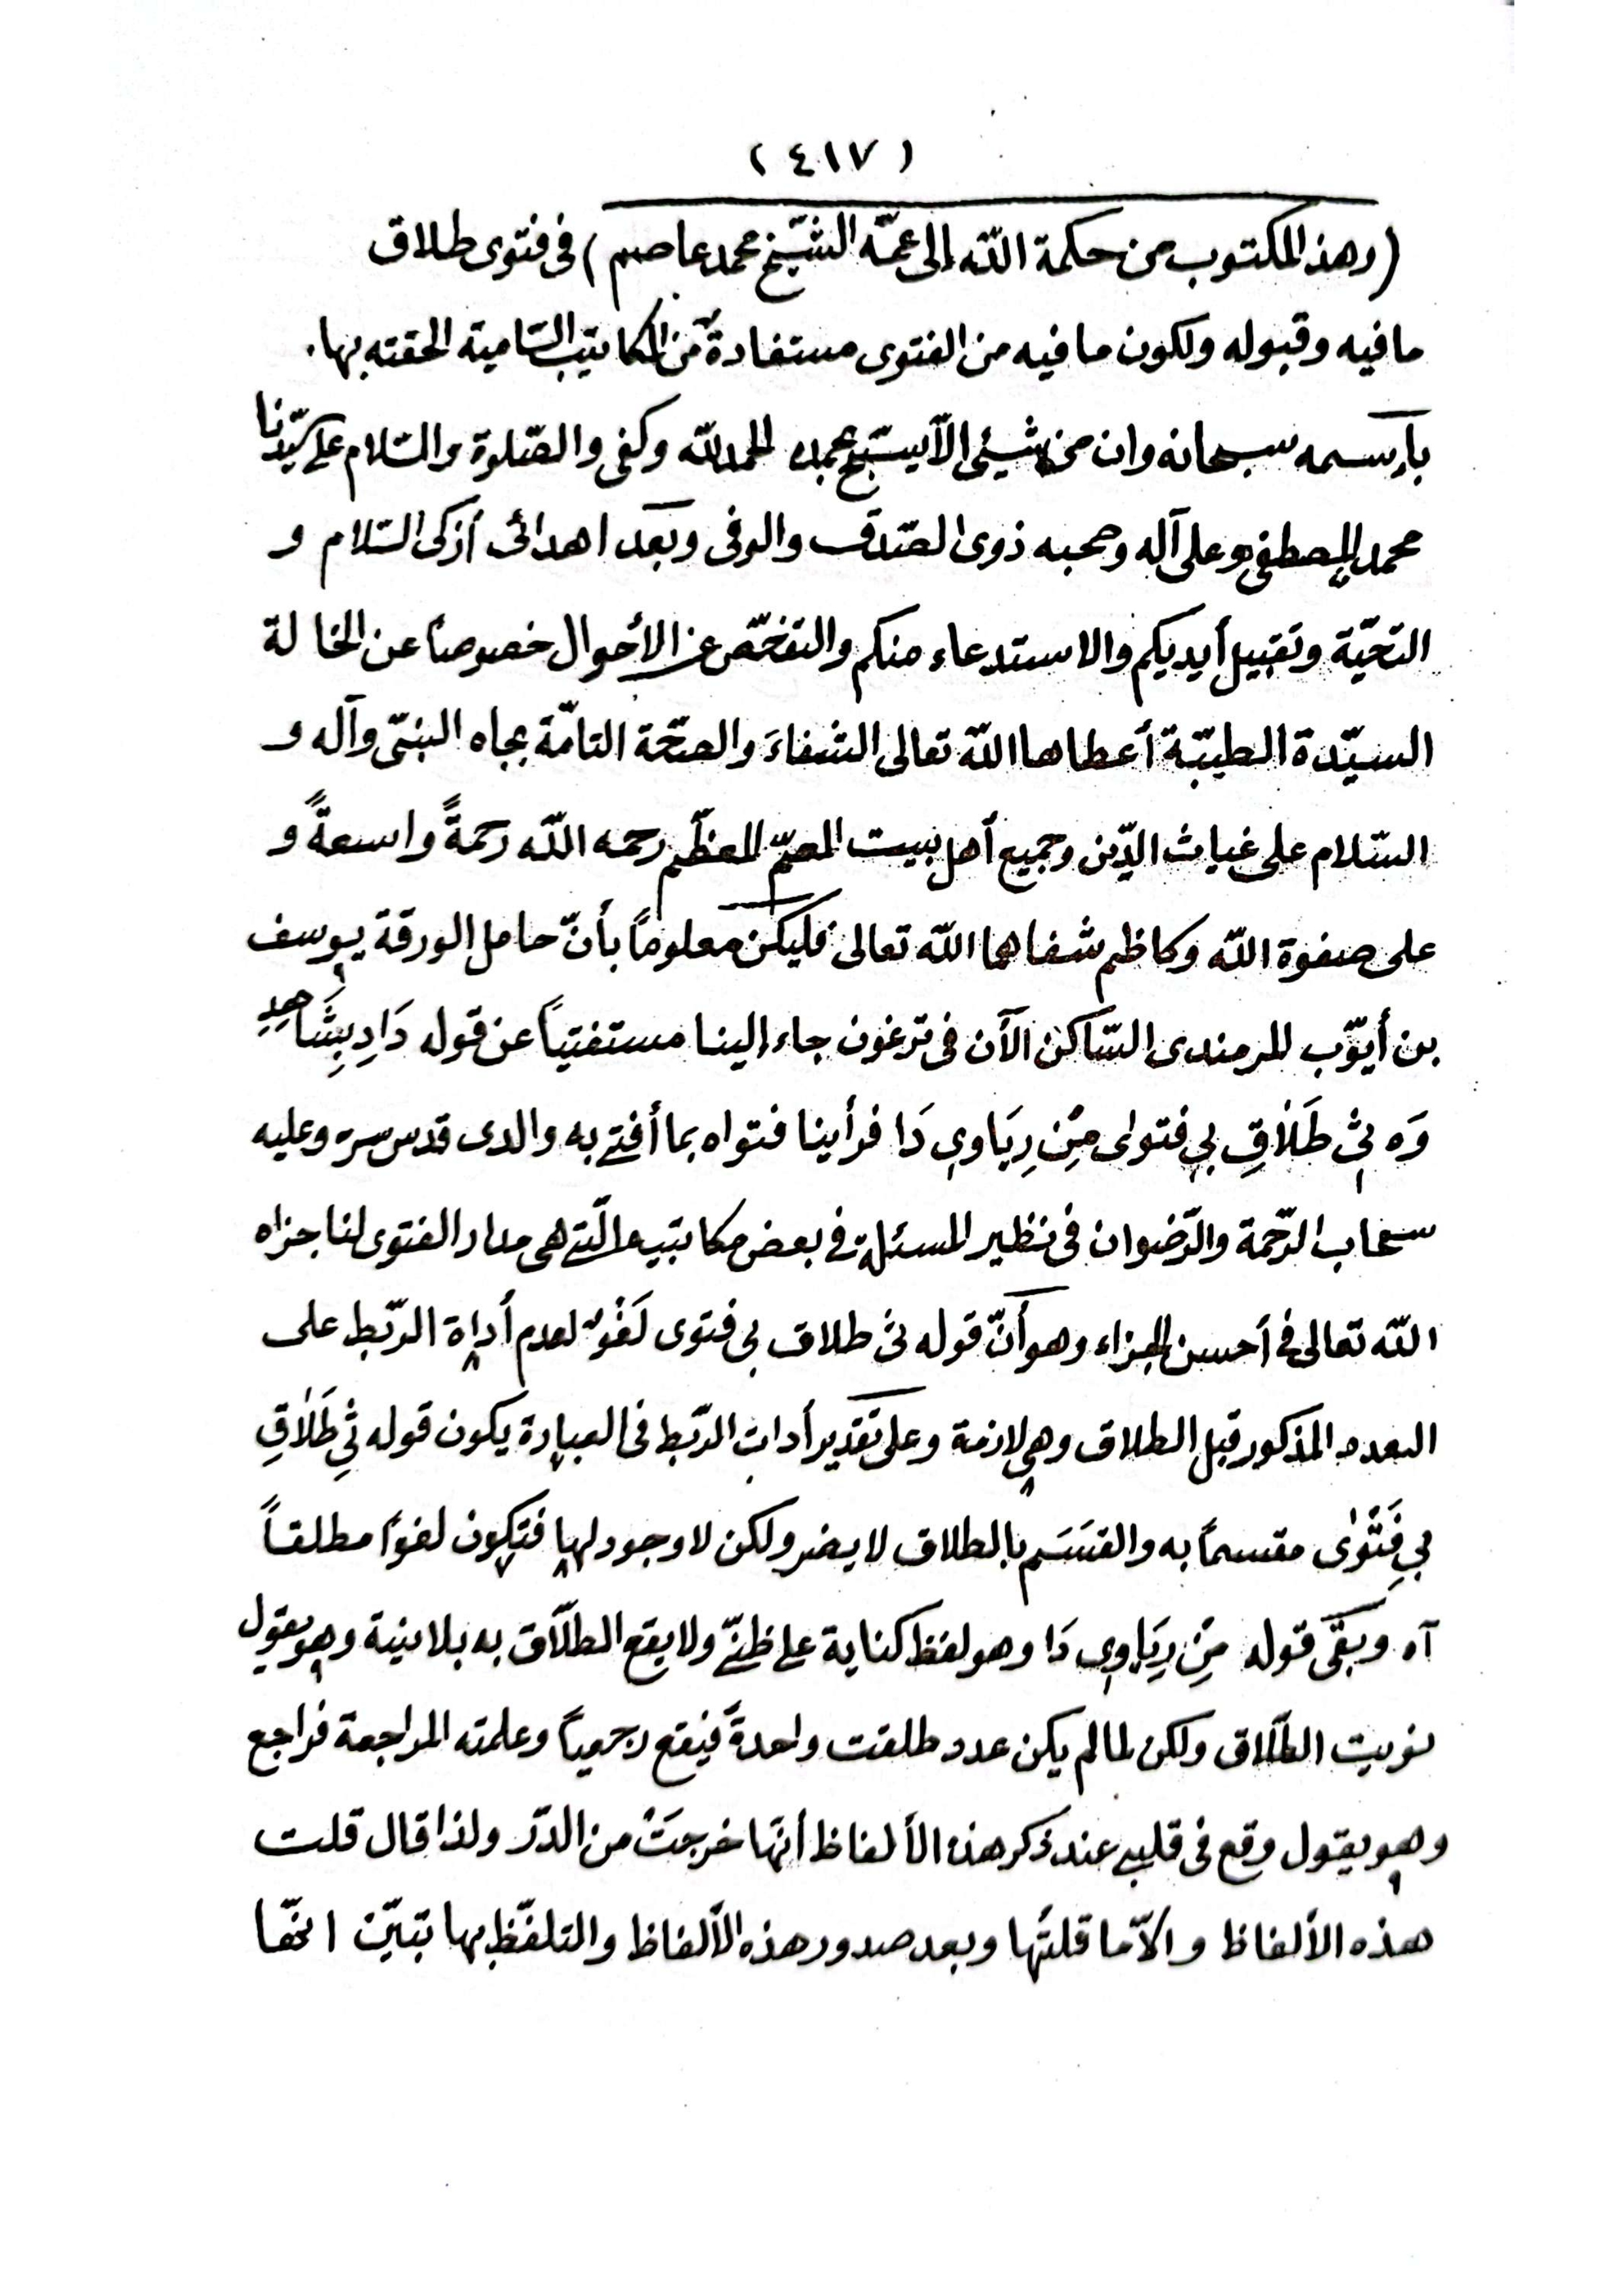 ( ٤١٧ )
(وهذ المكتوب من حكمة اللّه إلى عمّه الشّيخ محمد عاصم) فى فتوى طلاق
مافيه وقبوله ولكون مافيه من الفتوى مستفادةً من المكاتيب السّامية الحقته بها.
بإسمه سبحانه وان من شيئى الّا يسبّح بحمده الحمدللّه وكفى والصّلوة والسّلام على سيّدنا
محمدٍ المصطفى وعلى آله وصحبه ذوى الصّدق والوفى وبعد اهدائى أزكى السّلام و
التحيّة وتقبيل أيديكم والاستدعاء منكم والتفحّص عن الأحوال خصوصاً عن الخالة
السيّدة الطيبّة أعطاها اللّه تعالى الشفاءَ والصحّة التامّة بجاه النبىّ وآله و
السّلام على غياث الدّين وجميع أهل بيت العمّ المعظّم رحمه اللّه رحمةً واسعةً و
على صفوة اللّه وكاظم شفاهما اللّه تعالى فليكن معلوماً بأنّ حامل الورقة يوسف
بن أيّوب المرمندى السّاكن الآن فى ترغون جاء إلينا مستفتياً عن قوله دَادِ بِشَاهِدِ
وَه ثِ طَلَاقِ بِى فتواى مِنْ رِيَاوِى دَا فرأينا فتواه بما أفتى به والدى قدس سره وعليه
سحاب الرّحمة والرّضوان فى نظير المسئلة فى بعض مكاتبيه الّتى هى مدار الفتوى لنا جزاه
اللّه تعالى فى أحسن الجزاء وهو أنّ قوله ث طلاق بى فتوى لَغْوٌ لعدم أداة الرّبط على
العدد المذكور قبل الطلاق وهى لازمة وعلى تقدير أدات الرّبط فى العبارة يكون قوله ثِ طَلَاقِ
بِى فَتْوٰى مقسماً به والقسَم بالطلاق لا يضر ولكن لا وجود لها فتكون لغوًا مطلقاً
آه وبقى قوله مِنْ رِيَاوِى دَا وهو لفظ كناية على ظنّى ولا يقع الطلّاق به بلا نية وهو يقول
نويت الطّلاق ولكن لمالم يكن عدد طلقت واحدةً فيقع رجعياً وعلمته المراجعة فراجع
وهو يقول وقع فى قلبى عند ذكر هذه الألفاظ أنّها خرجَتْ من الدّار ولذا قال قلت
هذه الألفاظ والّا ما قلتُها وبعد صدور هذه الألفاظ والتلفّظ بها تبيّن انهّا